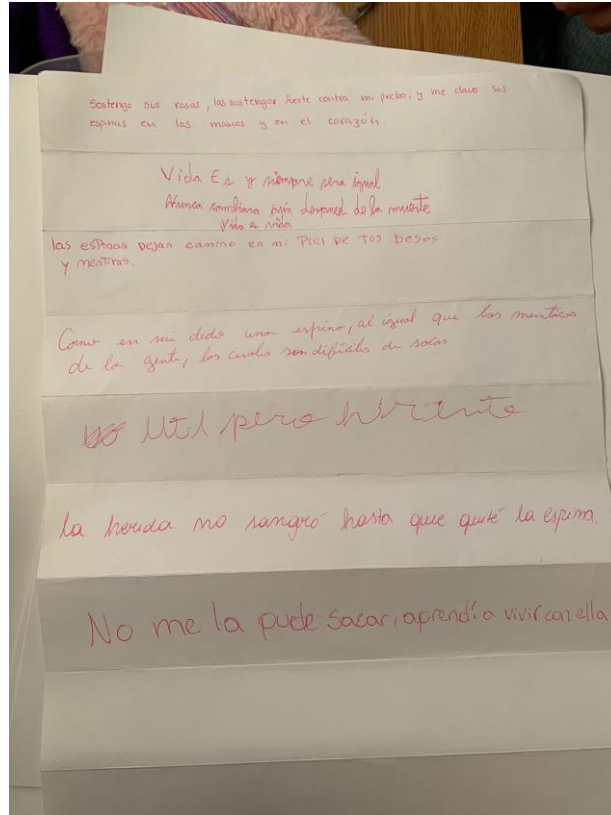 Sostengo sus rosas, las sostengor fuerte contra mi pecho, y me clavo sus
espinas en las manos y en el corazón.
Vida Es y siempre sera igual
Nunca cambiara aún despues de la muerte
Vida es vida
las espinas dejan camino en mi piel de tos besos
y mentiras.
Como en mi dedo una espina, al igual que las mentiras
de la gente, los cuales son difíciles de sacar
Util pero hiriente
La herida no sangró hasta que quité la espina.
No me la pude sacar, aprendí a vivir con ella